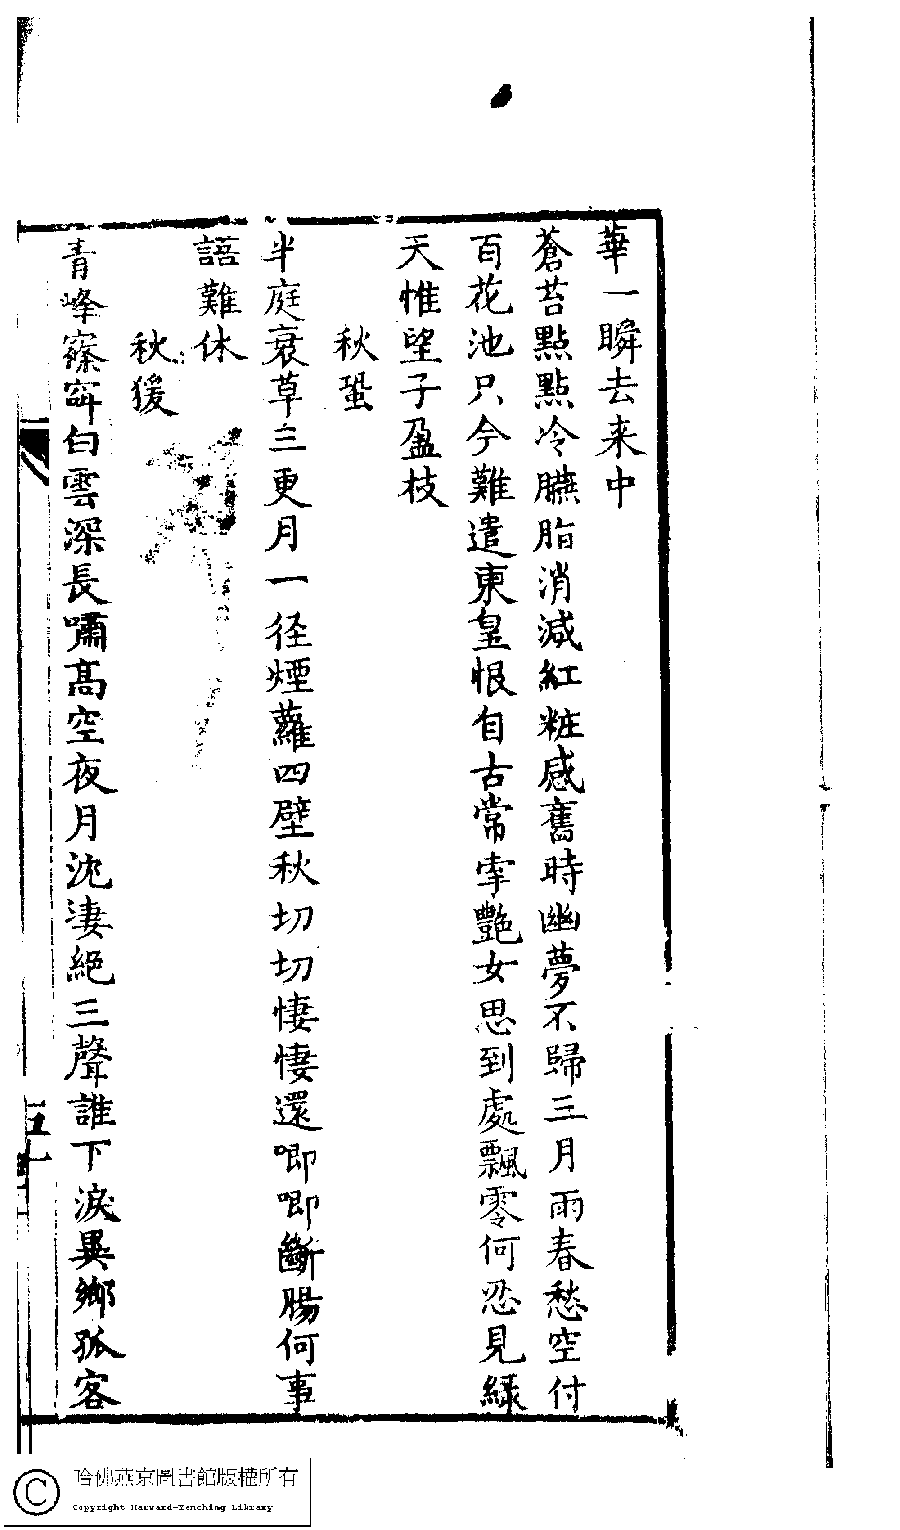 華一瞬去来中
蒼苔點點冷臙脂消減紅粧感舊時幽夢不歸三月雨春愁空付
百花池只今難遣東皇恨自古常牽艷女思到處飄零何忍見綠
天惟望子盈枝
秋蛩
半庭衰草三更月一径煙蘿四壁秋切切悽悽還唧唧斷腸何事
語難休
秋猨
青峰寥窣白雲深長嘯髙空夜月沈淒絕三聲誰下淚異鄉孤客
五七
哈佛燕京圖書館版權所有
Copyright Harvard-Yenching Library